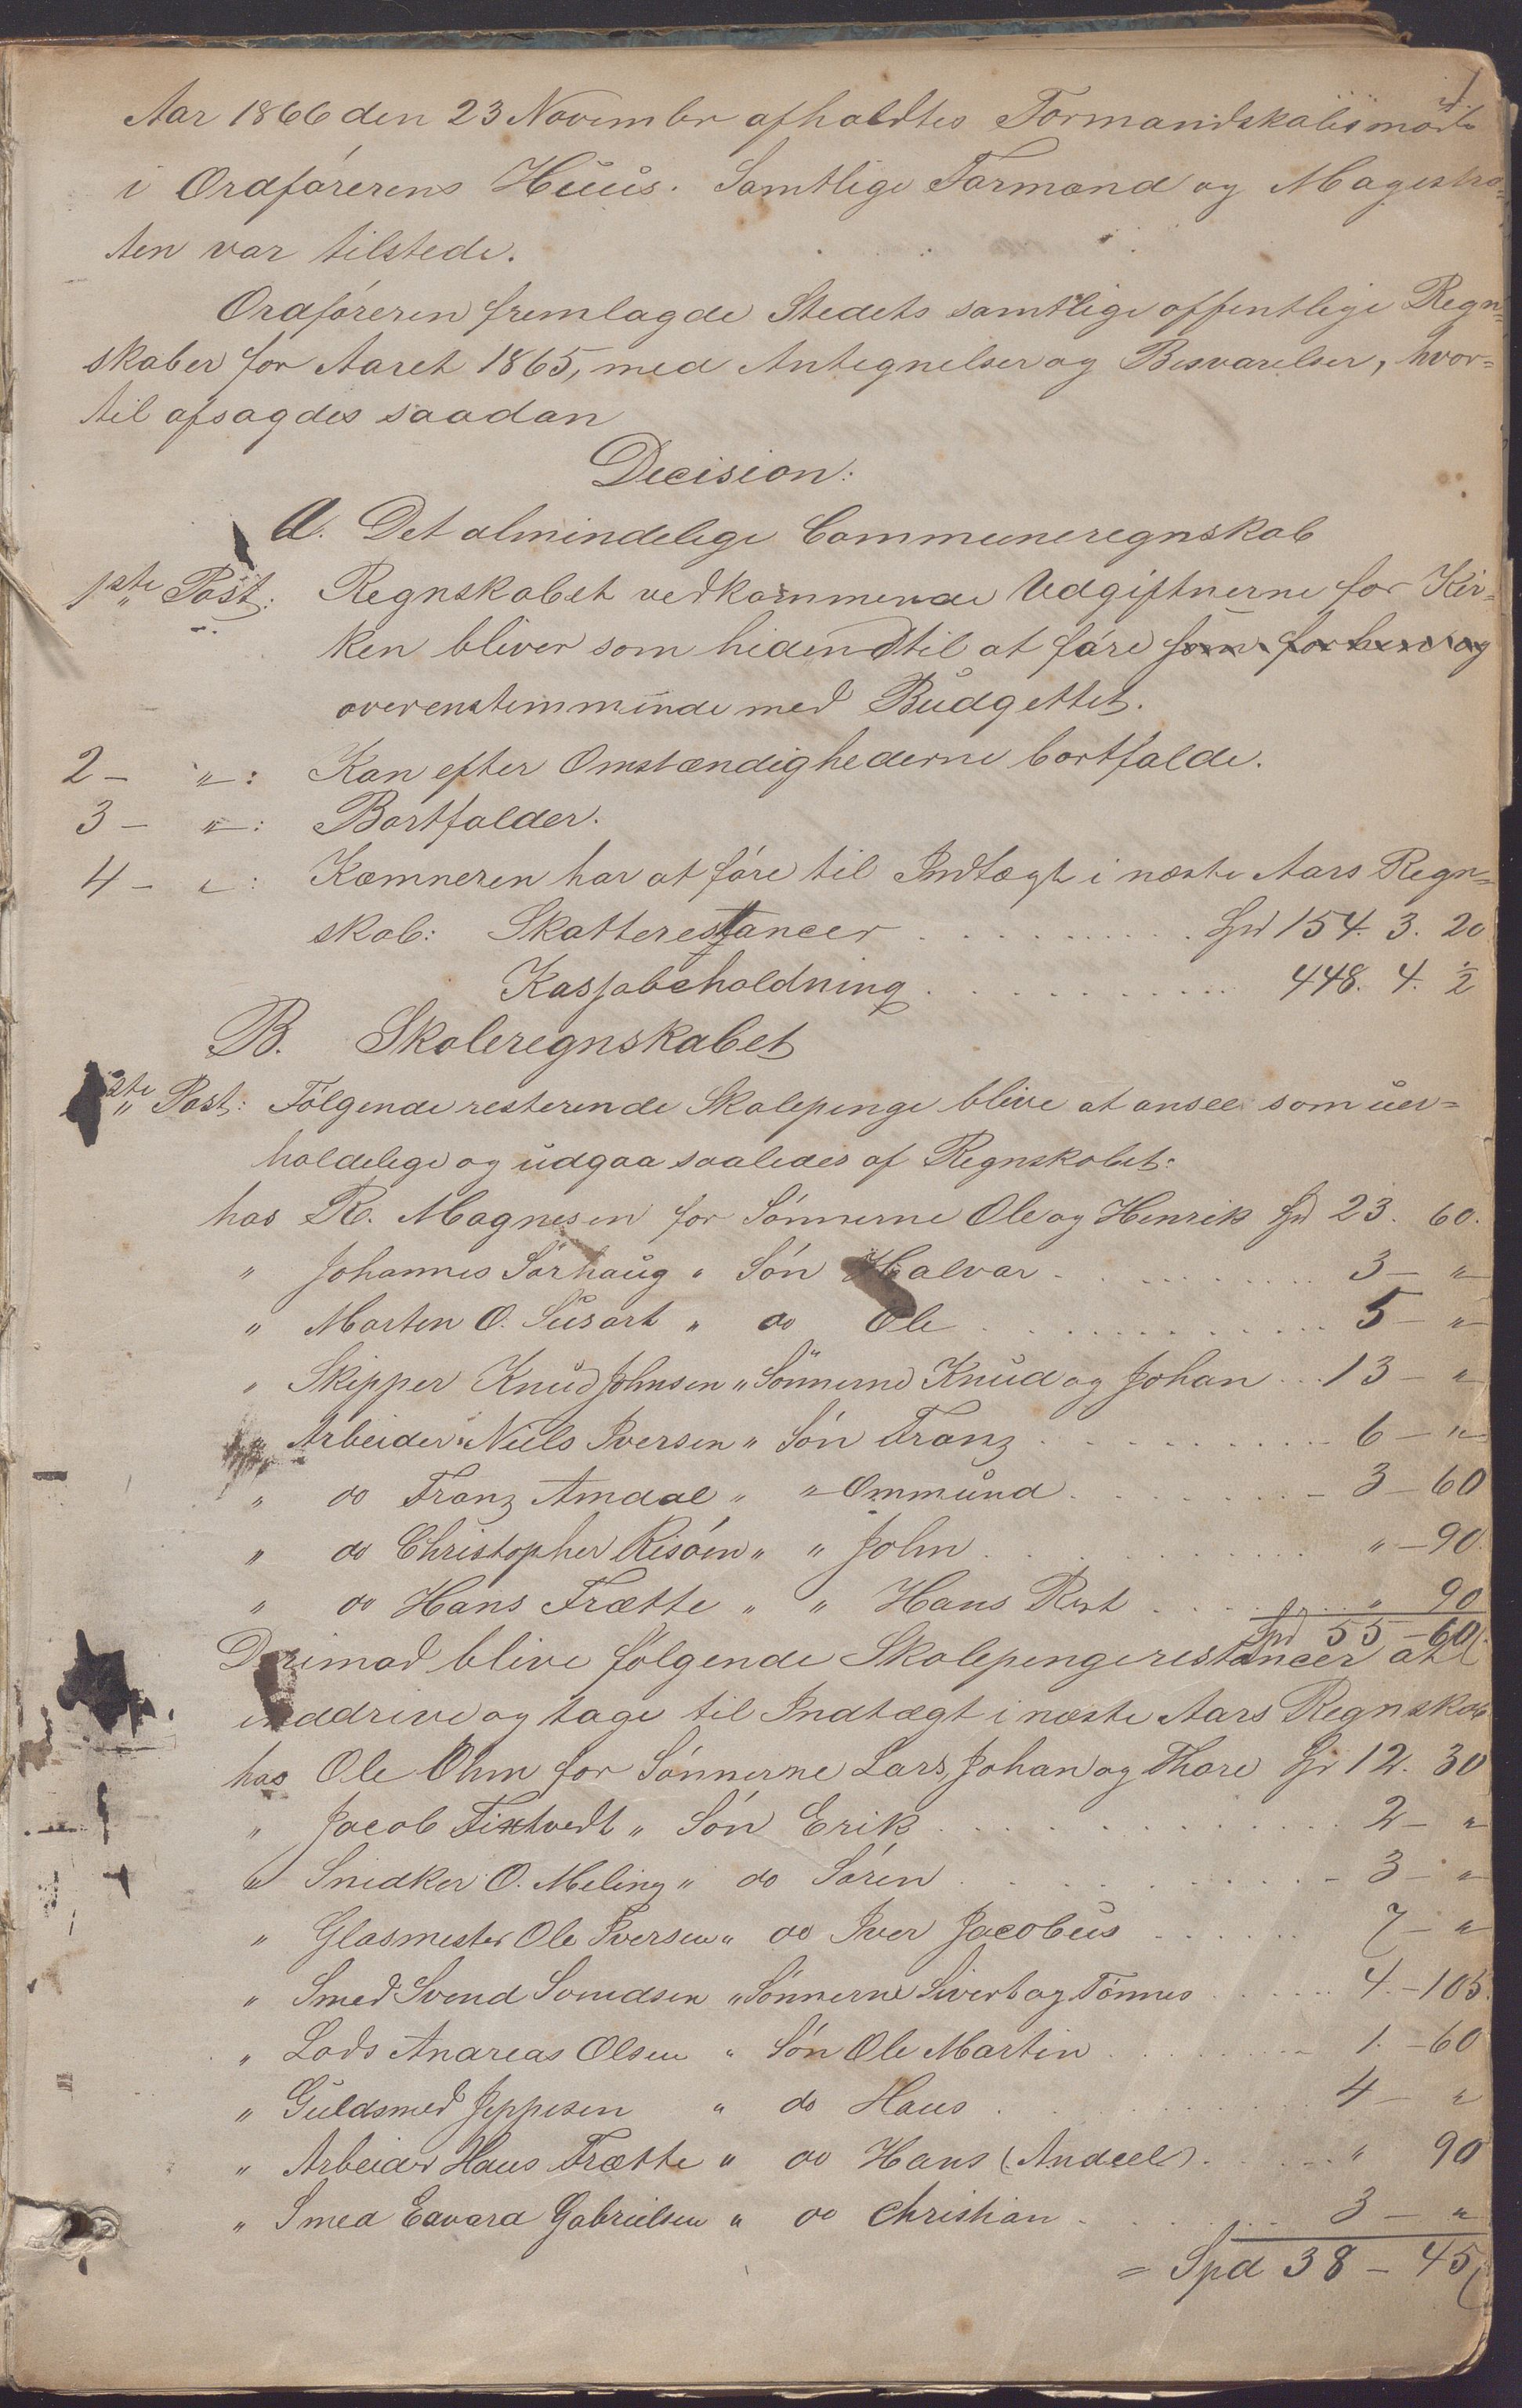 1
Aar 1866 den 23 November afholdtes Formandskabsmøde
i Ordførerens Huus. Samtlige Formænd og Magistra-
ten var tilstede.
Ordføreren fremlagde Stedets samtlige offentlige Regn-
skaber for Aaret 1865, med Antegnelser og Besvarelser, hvor-
til afsagdes saadan
Decision:
A. Det almindelige Communeregnskab
1ste Post: Regnskabet vedkommende Udgifterne for Kir-
ken bliver som hidindtil at føre som forhen og
overenstemmende med Budgettet.
2 - " : Kan efter Omstændighederne bortfalde.
3 - " : Bortfalder.
4 - " : Kæmneren har at føre til Indtægt i næste Aars Regn-
skab: Skatterestancer . . . . Spd 154. 3. 20
Kassabeholdning . . . . 448. 4. ½
B. Skoleregnskabet
2te Post: Følgende resterende Skolepenge blive at ansee som uer-
holdelige og udgaa saaledes af Regnskabet:
hos R. Magnesen for Sønnerne Ole og Henrik Spd 23. 60.
" Johannes Sørhaug " Søn Halvor . . . . 3 - "
" Morten O. Susort " do Ole . . . . 5 - "
" Skipper Knud Johnsen " Sønnerne Knud og Johan . . 13 - "
" Arbeider Niels Iversen " Søn Franz . . . . 6 - "
" do Franz Amdal " " Ommund . . . . 3 - 60
" do Christopher Risøen " " John . . . . " - 90.
" do Hans Trætte " " Hans Rest . . . . " 90
Spd 55 - 60.
Derimod blive følgende Skolepengerestancer at
inddrive og tage til Indtægt i næste Aars Regnskab
hos Ole Ohm for Sønnerne Lars, Johan og Thore Spd 12. 30
" Jacob Tixtvedt " Søn Erik . . . . 2 - "
" Snedker O. Meling " do Søren . . . . 3 - "
" Glasmester Ole Iversen " do Iver Jacobus . . . . 7 - "
" Smed Svend Svendsen " Sønnerne Sivert og Tønnes . . . . 4. - 105.
" Lods Andreas Olsen " Søn Ole Martin . . . . 1. - 60
" Guldsmed Jeppesen " do Hans . . . . 4 - "
" Arbeider Hans Trætte " do Hans (Andeel) . . . . " 90
" Smed Edvard Gabrielsen " do Christian . . . . 3 - "
= Spd 38 - 45